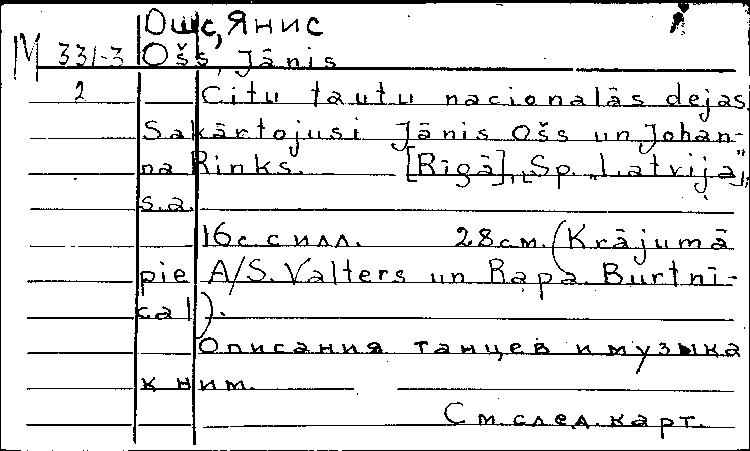 Ошс, Янис
М 331-3 Ošs, Jānis
2 Citu tautu nacionalās dejas.
Sakārtojusi Jānis Ošs un Johan-
na Rinks. [Rīgā], Sp. „Latvija",
s.a.
16 с. с илл. 28 см. (Krājumā
pie A/S. Valters un Rapa. Burtnī-
ca 1).
Описания танцев и музыка
к ним.
См. след. карт.